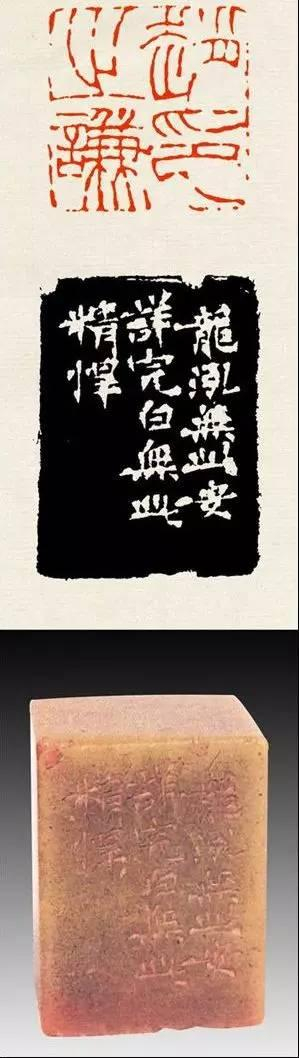 趙印
之謙
龍泓無此安
詳完白無此
精悍
龍泓無此安
詳完白無此
精悍